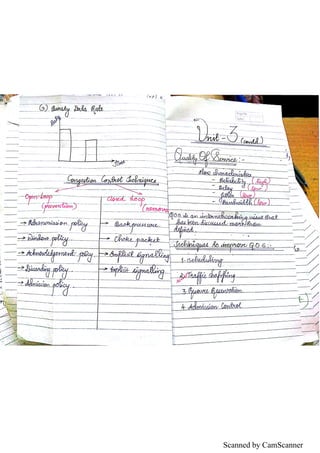 (3) Bursty Data Rate
Time
Congestion Control Techniques
Open Loop
(prevention)
Closed Loop
(removing
→ Retransmission policy
→ Window policy
→ Acknowledgement policy
→ Discarding policy
→ Admission policy
→ Backpressure
→ Choke packet
→ Implicit signalling
→ Explicit signalling
Unit - 3 (contd.)
Quality Of Service :-
Flow characteristics
- Reliability (high)
- Delay (low)
- Jitter (low)
- Bandwidth (low)
QOS is an internetworking issue that
has been discussed more than
defined.
Techniques to improve Q.O.S :-
1. Scheduling
2. Traffic Shaping
3. Resource Reservation
4. Admission Control
Scanned by CamScanner